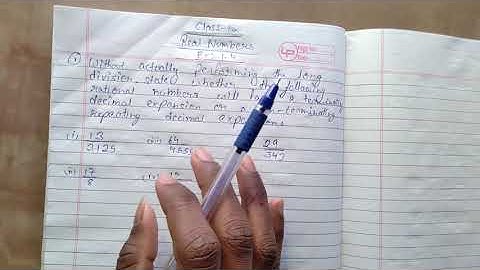 Class-10
Real Numbers
Ex-1.4
1 Without actually performing the long
division state whether the following
rational numbers will have a terminating
decimal expansion or a non-terminating
repeating decimal expansions
(i) 13
3125
64
455
29
343
(ii) 17
8
15